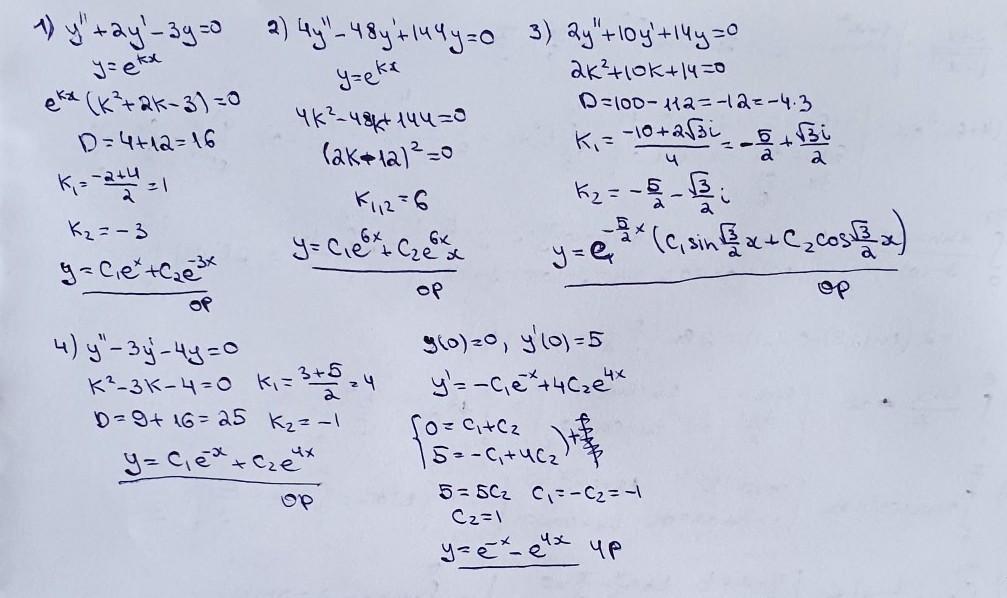 1) y''+2y'-3y=0
y=e^{kx}
e^{kx}(k²+2k-3)=0
D=4+12=16
k₁=\frac{-2+4}{2}=1
k₂=-3
y=C₁e^x+C₂e^{-3x}
ОР
2) 4y''-48y'+144y=0
y=e^{kx}
4k²-48k+144=0
(2k-12)²=0
k₁,₂=6
y=C₁e^{6x}+C₂e^{6x}x
ОР
3) 2y''+10y'+14y=0
2k²+10k+14=0
D=100-112=-12=-4·3
k₁=\frac{-10+2√3i}{4}=-\frac{5}{2}+\frac{√3i}{2}
k₂=-\frac{5}{2}-\frac{√3}{2}i
y=e^{-\frac{5}{2}x}(C₁sin\frac{√3}{2}x+C₂cos\frac{√3}{2}x)
ОР
4) y''-3y'-4y=0
k²-3k-4=0 k₁=\frac{3+5}{2}=4
D=9+16=25 k₂=-1
y=C₁e^{-x}+C₂e^{4x}
ОР
y(0)=0, y'(0)=5
y'=-C₁e^{-x}+4C₂e^{4x}
{0=C₁+C₂
5=-C₁+4C₂ )+
5=5C₂ C₁=-C₂=-1
C₂=1
y=e^{-x}-e^{4x} ЧР